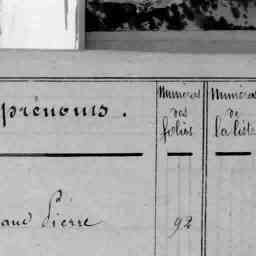 prénoms.
Numéros des folios
Numéros de la liste
Pierre 92